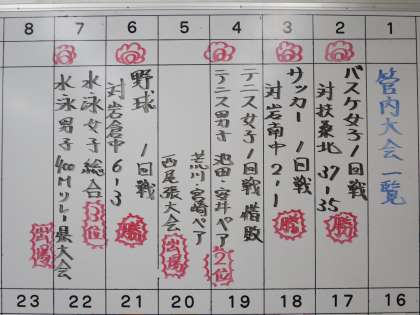 8 7 6 5 4 3 2 1
管内大会一覧
バスケ女子1回戦
対扶桑北 37-35 勝
サッカー 1回戦
対岩南中 2-1 勝
テニス女子1回戦 惜敗
テニス男子 池田・安井ペア 2位
荒川・宮崎ペア
西尾張大会出場
野球 1回戦
対岩倉中 6-3 勝
水泳女子 総合3位
水泳男子 400mリレー県大会
出場
23 22 21 20 19 18 17 16